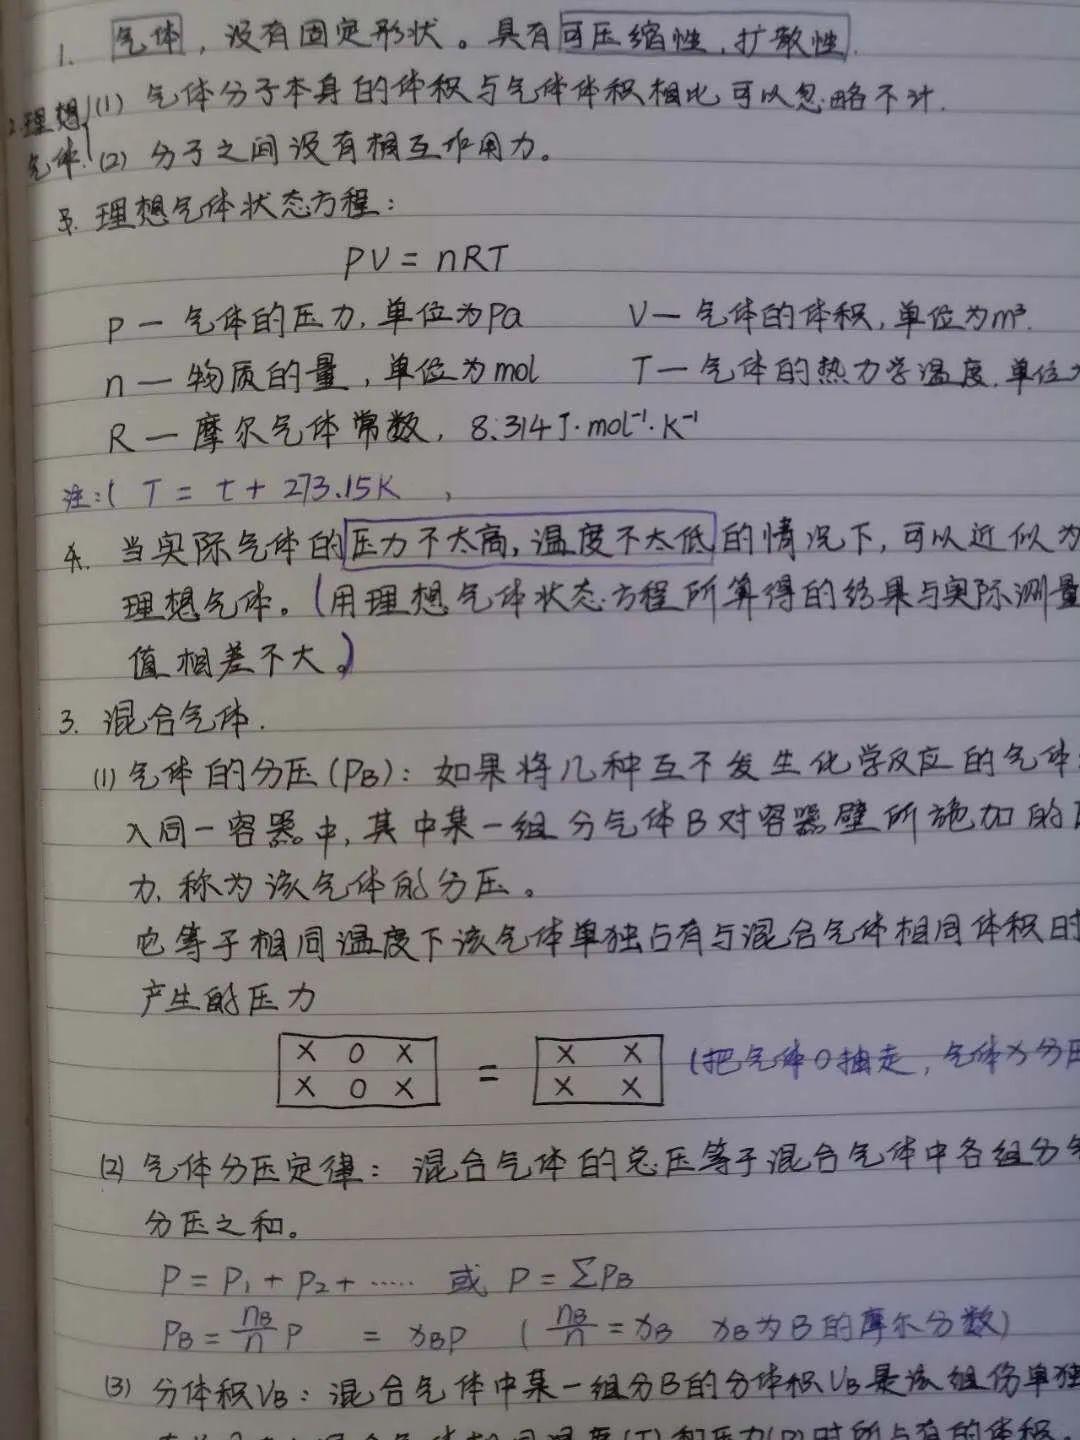 1. 气体，没有固定形状。具有可压缩性，扩散性.
2.理想气体 (1) 气体分子本身的体积与气体体积相比可以忽略不计.
(2) 分子之间没有相互作用力。
3. 理想气体状态方程：
PV = nRT
P — 气体的压力，单位为Pa V — 气体的体积，单位为m³.
n — 物质的量，单位为mol T — 气体的热力学温度，单位为
R — 摩尔气体常数，8.314J·mol⁻¹·K⁻¹
注：( T = t + 273.15K ，
4. 当实际气体的压力不太高，温度不太低的情况下，可以近似为
理想气体。(用理想气体状态方程所算得的结果与实际测量
值相差不大。)
3. 混合气体.
(1) 气体的分压(PB)：如果将几种互不发生化学反应的气体
入同一容器中，其中某一组分气体B对容器壁所施加的
力，称为该气体的分压。
它等于相同温度下该气体单独占有与混合气体相同体积时
产生的压力
X O X
X O X
=
X X
X X
(把气体O抽走，气体X分压
(2) 气体分压定律：混合气体的总压等于混合气体中各组分气
分压之和。
P = P₁ + P₂ + ······ 或 P = ΣPB
PB = nB/n P = xBP ( nB/n = xB xB为B的摩尔分数)
(3) 分体积VB：混合气体中某一组分B的分体积VB是该组份单独
混合气体相同温度(T)和压力(P)时所占有的体积.